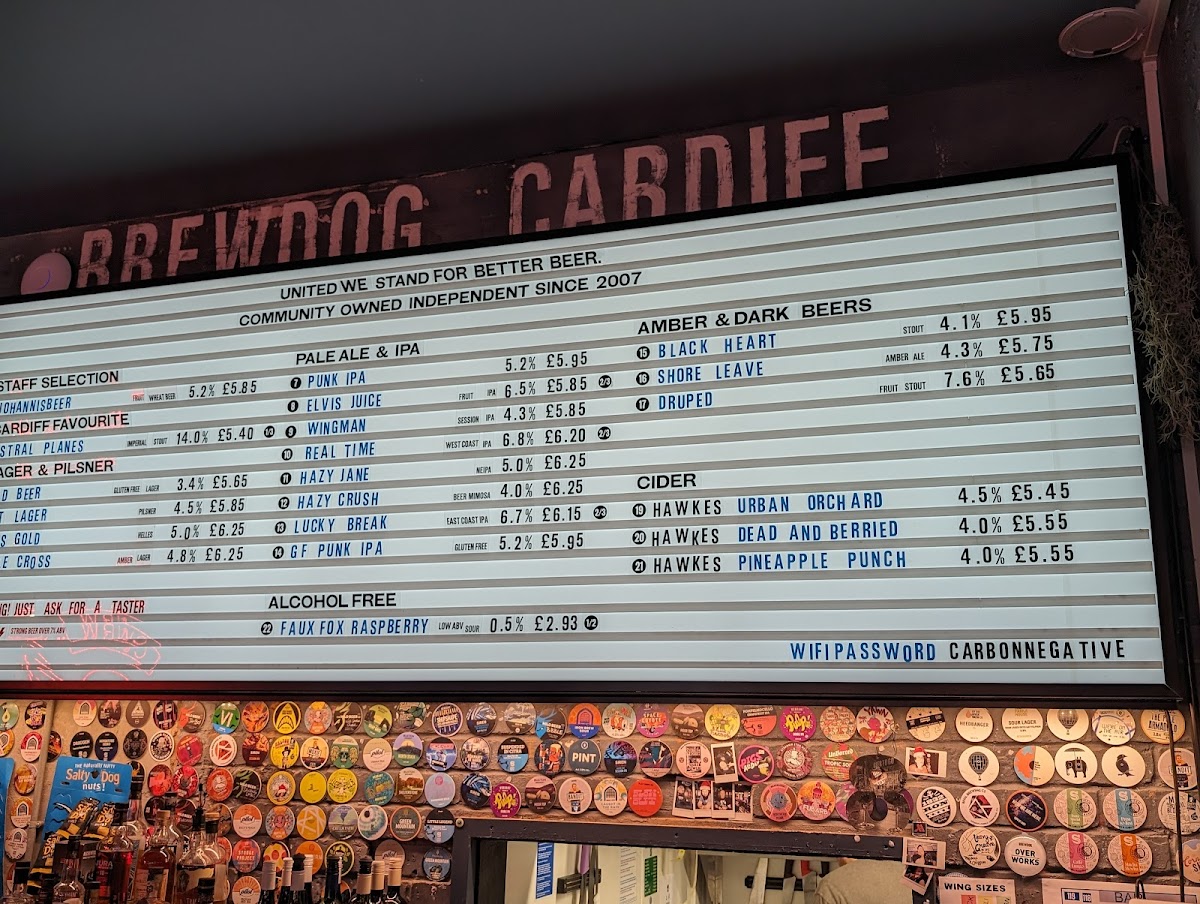 BREWDOG CARDIFF
UNITED WE STAND FOR BETTER BEER.
COMMUNITY OWNED INDEPENDENT SINCE 2007
STAFF SELECTION
JOHANNISBEER FRUIT WHEAT BEER 5.2% £5.85
CARDIFF FAVOURITE
STRAL PLANES IMPERIAL STOUT 14.0% £5.40 1/4
AGER & PILSNER
D BEER GLUTEN FREE LAGER 3.4% £5.65
T LAGER PILSNER 4.5% £5.85
S GOLD HELLES 5.0% £6.25
E CROSS AMBER LAGER 4.8% £6.25
G! JUST ASK FOR A TASTER
STRONG BEER OVER 7% ABV
PALE ALE & IPA
7 PUNK IPA 5.2% £5.95
8 ELVIS JUICE FRUIT IPA 6.5% £5.85 2/3
9 WINGMAN SESSION IPA 4.3% £5.85
10 REAL TIME WEST COAST IPA 6.8% £6.20 2/3
11 HAZY JANE NEIPA 5.0% £6.25
12 HAZY CRUSH BEER MIMOSA 4.0% £6.25
13 LUCKY BREAK EAST COAST IPA 6.7% £6.15 2/3
14 GF PUNK IPA GLUTEN FREE 5.2% £5.95
ALCOHOL FREE
22 FAUX FOX RASPBERRY LOW ABV SOUR 0.5% £2.93 1/2
AMBER & DARK BEERS
15 BLACK HEART STOUT 4.1% £5.95
16 SHORE LEAVE AMBER ALE 4.3% £5.75
17 DRUPED FRUIT STOUT 7.6% £5.65
CIDER
19 HAWKES URBAN ORCHARD 4.5% £5.45
20 HAWKES DEAD AND BERRIED 4.0% £5.55
21 HAWKES PINEAPPLE PUNCH 4.0% £5.55
WIFI PASSWORD CARBONNEGATIVE
Salty Dog
nuts!
PINT
OVER
WORKS
WING SIZES